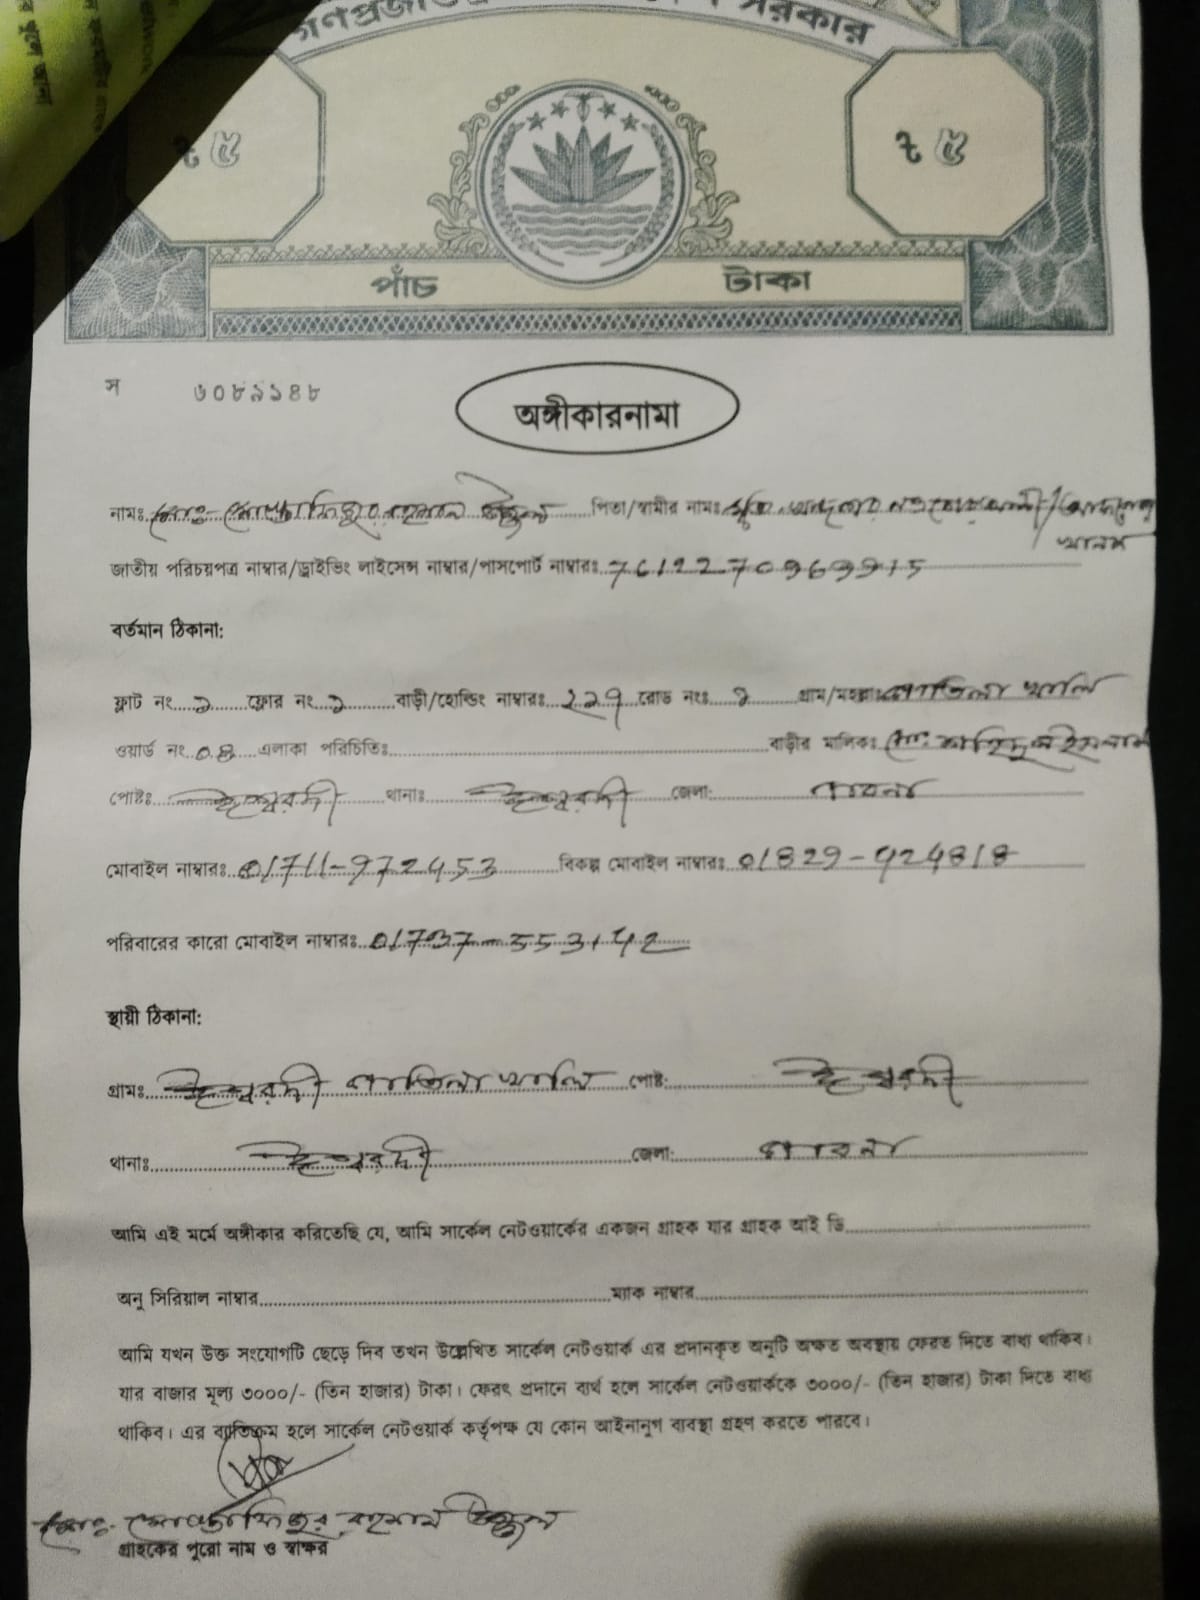 গণপ্রজাতন্ত্রী সরকার
৳ ৫ ৳ ৫
পাঁচ টাকা
স ৬০৮৯১৪৮
অঙ্গীকারনামা
নামঃ মোঃ- মোস্তাফিজুর রহমান উজ্জল পিতা/স্বামীর নামঃ
জাতীয় পরিচয়পত্র নাম্বার/ড্রাইভিং লাইসেন্স নাম্বার/পাসপোর্ট নাম্বারঃ
বর্তমান ঠিকানা:
ফ্লাট নং ফ্লোর নং বাড়ী/হোল্ডিং নাম্বারঃ ২২৭ রোড নংঃ গ্রাম/মহল্লা
ওয়ার্ড নং ০৪ এলাকা পরিচিতিঃ বাড়ীর মালিকঃ মোঃ ইসলাম
পোষ্টঃ ঈশ্বরদী থানাঃ ঈশ্বরদী জেলা: পাবনা
মোবাইল নাম্বারঃ 01711-972453 বিকল্প মোবাইল নাম্বারঃ 01829-424818
পরিবারের কারো মোবাইল নাম্বারঃ
স্থায়ী ঠিকানা:
গ্রামঃ ঈশ্বরদী পোষ্ট: ঈশ্বরদী
থানাঃ ঈশ্বরদী জেলা: পাবনা
আমি এই মর্মে অঙ্গীকার করিতেছি যে, আমি সার্কেল নেটওয়ার্কের একজন গ্রাহক যার গ্রাহক আই ডি
অনু সিরিয়াল নাম্বার ম্যাক নাম্বার
আমি যখন উক্ত সংযোগটি ছেড়ে দিব তখন উল্লেখিত সার্কেল নেটওয়ার্ক এর প্রদানকৃত অনুটি অক্ষত অবস্থায় ফেরত দিতে বাধ্য থাকিব।
যার বাজার মূল্য ৩০০০/- (তিন হাজার) টাকা। ফেরৎ প্রদানে ব্যর্থ হলে সার্কেল নেটওয়ার্ককে ৩০০০/- (তিন হাজার) টাকা দিতে বাধ্য
থাকিব। এর ব্যতিক্রম হলে সার্কেল নেটওয়ার্ক কর্তৃপক্ষ যে কোন আইনানুগ ব্যবস্থা গ্রহণ করতে পারবে।
মোঃ- মোস্তাফিজুর রহমান উজ্জল
গ্রাহকের পুরো নাম ও স্বাক্ষর